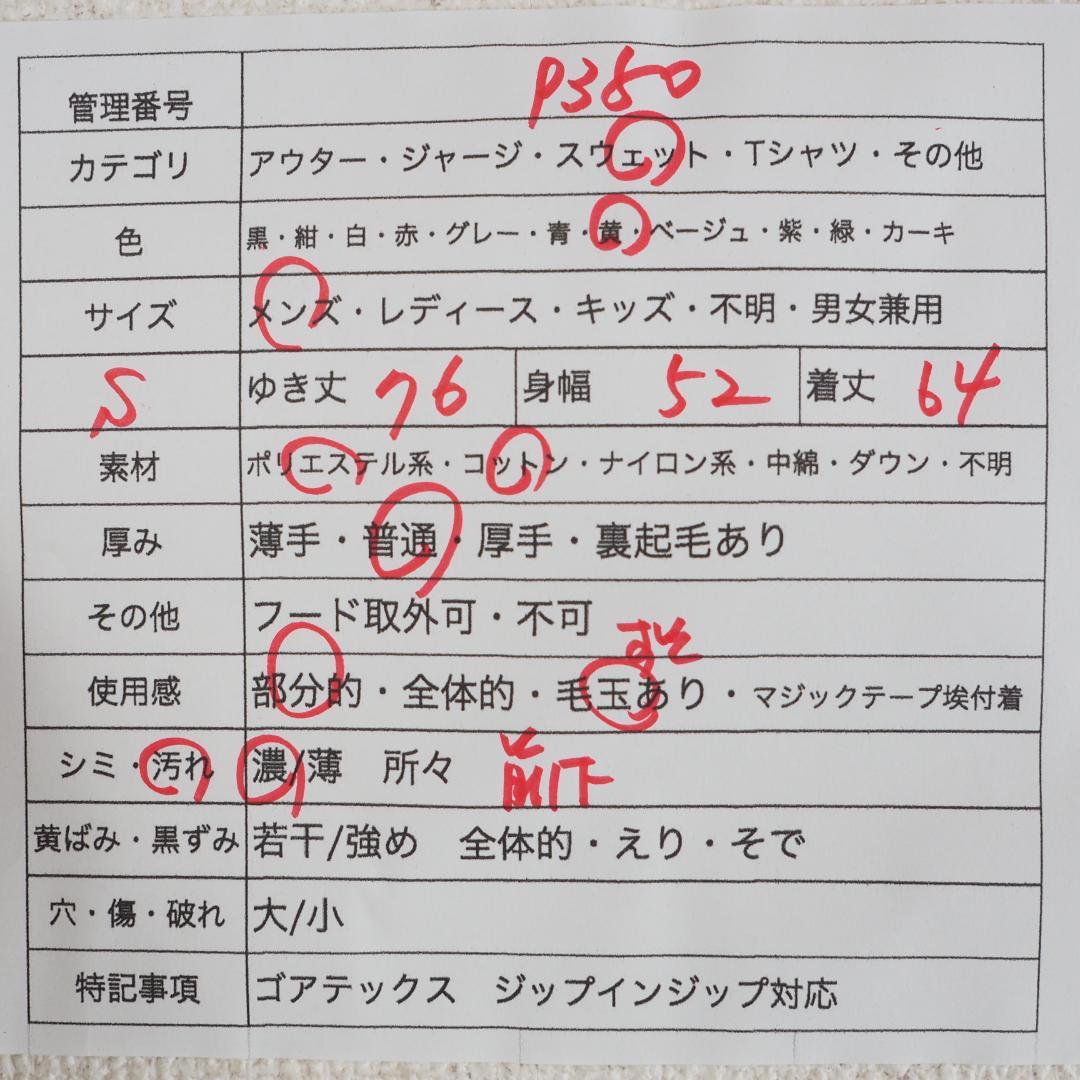 管理番号 P380
カテゴリ アウター・ジャージ・スウェット・Tシャツ・その他
色 黒・紺・白・赤・グレー・青・黄・ベージュ・紫・緑・カーキ
サイズ メンズ・レディース・キッズ・不明・男女兼用
S ゆき丈 76 身幅 52 着丈 64
素材 ポリエステル系・コットン・ナイロン系・中綿・ダウン・不明
厚み 薄手・普通・厚手・裏起毛あり
その他 フード取外可・不可
すそ
使用感 部分的・全体的・毛玉あり・マジックテープ埃付着
シミ・汚れ 濃/薄 所々 前下
黄ばみ・黒ずみ 若干/強め 全体的・えり・そで
穴・傷・破れ 大/小
特記事項 ゴアテックス ジップインジップ対応